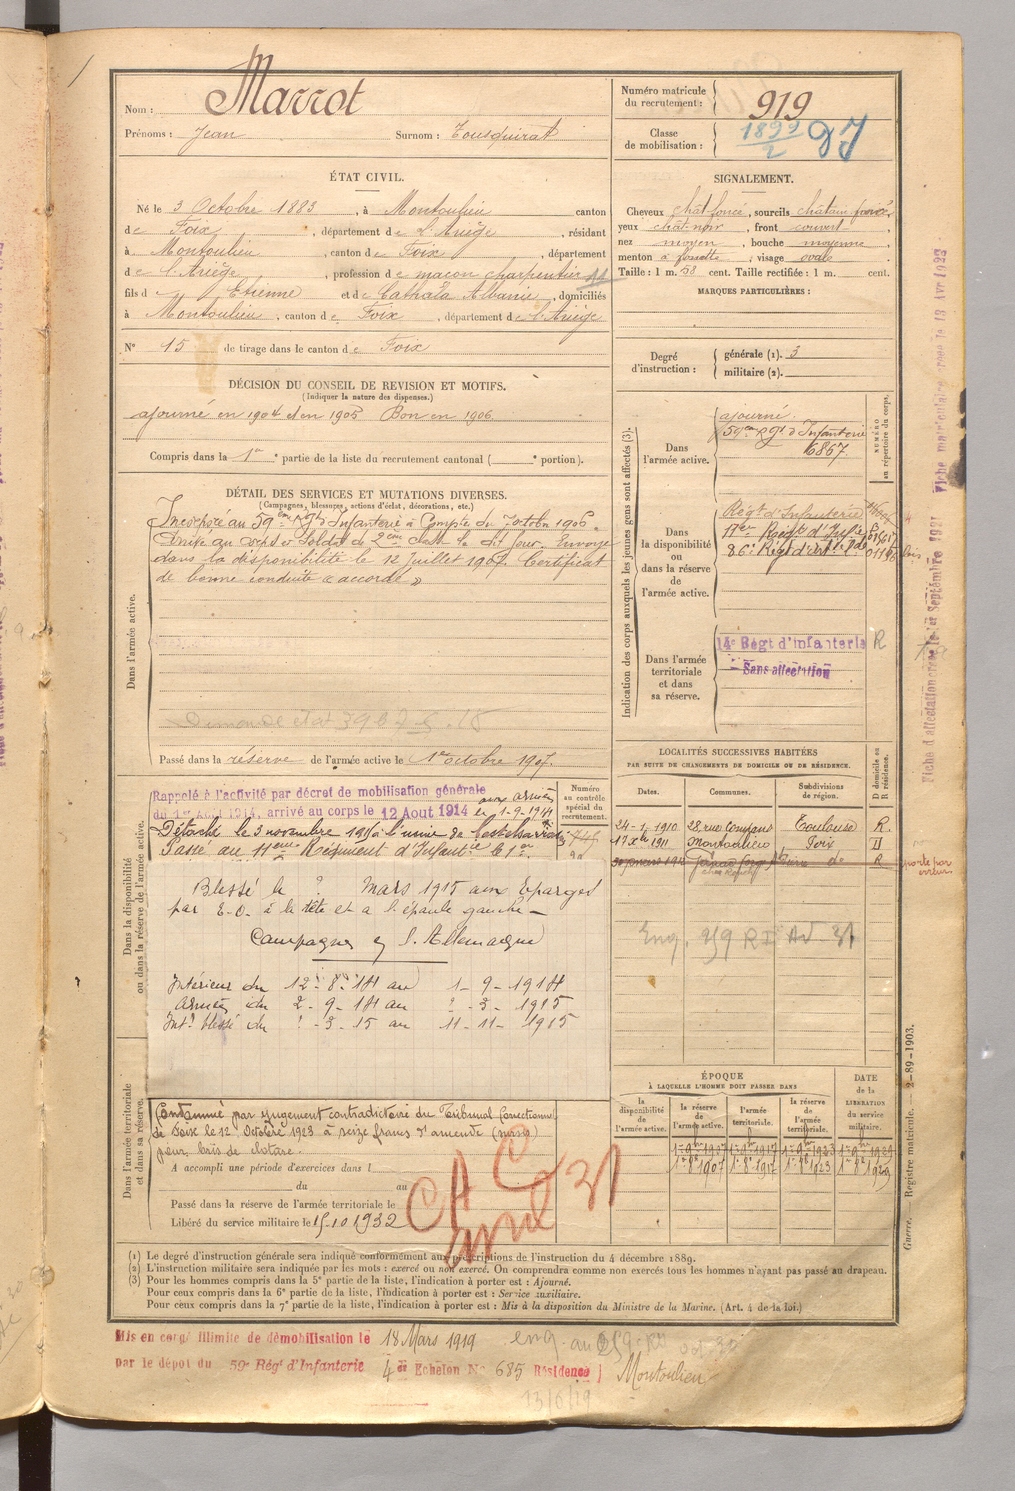 Nom : Marrot
Prénoms : Jean Surnom : Tousquirat
Numéro matricule du recrutement : 919
Classe de mobilisation : 1899/2 97
ÉTAT CIVIL.
Né le 3 Octobre 1883, à Montoulieu canton
de Foix, département de l'Ariège, résidant
à Montoulieu, canton de Foix, département
de l'Ariège, profession de maçon charpentier
fils d' Etienne et de Cathala Albanie, domiciliés
à Montoulieu, canton de Foix, département de l'Ariège
N° 15 de tirage dans le canton de Foix
SIGNALEMENT.
Cheveux chât foncé, sourcils châtain foncé,
yeux chât-noir, front couvert
nez moyen, bouche moyenne
menton à fossette, visage ovale
Taille : 1 m. 58 cent. Taille rectifiée : 1 m. cent.
MARQUES PARTICULIÈRES :
Degré d'instruction : générale (1). 3
militaire (2).
DÉCISION DU CONSEIL DE REVISION ET MOTIFS.
(Indiquer la nature des dispenses.)
ajourné en 1904 et en 1905 Bon en 1906
Compris dans la 1re partie de la liste du recrutement cantonal ( e portion).
DÉTAIL DES SERVICES ET MUTATIONS DIVERSES.
(Campagnes, blessures, actions d'éclat, décorations, etc.)
Dans l'armée active.
Incorporé au 59ème Rgt d'Infanterie à Compter du 7 octobre 1906.
Arrivé au corps et Soldat de 2ème classe le dit jour. Envoyé
dans la disponibilité le 12 juillet 1907. Certificat
de bonne conduite « accordé »
Passé dans la réserve de l'armée active le 1er octobre 1907.
Indication des corps auxquels les jeunes gens sont affectés (3).
NUMÉRO au répertoire du corps.
Dans l'armée active.
ajourné
59ème Rgt d'Infanterie
6867
Dans la disponibilité ou dans la réserve de l'armée active.
Régt d'Infanterie
11er Régt d'Infie
Dans l'armée territoriale et dans sa réserve.
14e Régt d'infanterie R
Sans affectation
Fiche matriculaire créée le 18 Avr 1923
Fiche d'affectation créée le 1er Septembre 1927
LOCALITÉS SUCCESSIVES HABITÉES
PAR SUITE DE CHANGEMENTS DE DOMICILE OU DE RÉSIDENCE.
Dates. Communes. Subdivisions de région. D domicile ou R résidence.
24-1-1910 28 rue Compans Toulouse R.
17 Xbre 1911 Montoulieu Foix D
porté par erreur
Eng. 259 RI Ad. 31
Dans la disponibilité ou dans la réserve de l'armée active.
Numéro au contrôle spécial du recrutement.
Rappelé à l'activité par décret de mobilisation générale
du 1er Août 1914, arrivé au corps le 12 Aout 1914 aux armées le 1-9-1914
Détaché le 3 novembre 1916 à l'usine de Castelsarrasin
Passé au 11eme Régiment d'Infantie le 1er
Blessé le ? Mars 1915 aux Eparges
par E.O. à la tête et a l'épaule gauche
Campagnes c/ l'Allemagne
Intérieur du 12-8-14 au 1-9-1914
Armées du 2-9-14 au ?-3-1915
Intr blessé du ?-3-15 au 11-11-1915
Dans l'armée territoriale et dans sa réserve.
Condamné par jugement contradictoire du Tribunal Correctionnel
de Foix le 12 Octobre 1923 à seize francs d'amende (sursis)
pour bris de cloture.
A accompli une période d'exercices dans l
du au
Passé dans la réserve de l'armée territoriale le
Libéré du service militaire le 15-10 1932
ÉPOQUE
À LAQUELLE L'HOMME DOIT PASSER DANS
la disponibilité de l'armée active. la réserve de l'armée active. l'armée territoriale. la réserve de l'armée territoriale. DATE de la LIBÉRATION du service militaire.
1er 8bre 1907 1er 8bre 1917 1er 8bre 1923 1er 8bre 1929
Guerre. — Registre matricule. — 2-89-1903.
(1) Le degré d'instruction générale sera indiqué conformément aux prescriptions de l'instruction du 4 décembre 1889.
(2) L'instruction militaire sera indiquée par les mots : exercé ou non exercé. On comprendra comme non exercés tous les hommes n'ayant pas passé au drapeau.
(3) Pour les hommes compris dans la 5e partie de la liste, l'indication à porter est : Ajourné.
Pour ceux compris dans la 6e partie de la liste, l'indication à porter est : Service auxiliaire.
Pour ceux compris dans la 7e partie de la liste, l'indication à porter est : Mis à la disposition du Ministre de la Marine. (Art. 4 de la loi.)
Mis en congé illimité de démobilisation le 18 Mars 1919
par le dépôt du 59e Régt d'Infanterie 4e Echelon No 685 Résidence Montoulieu
13/6/19